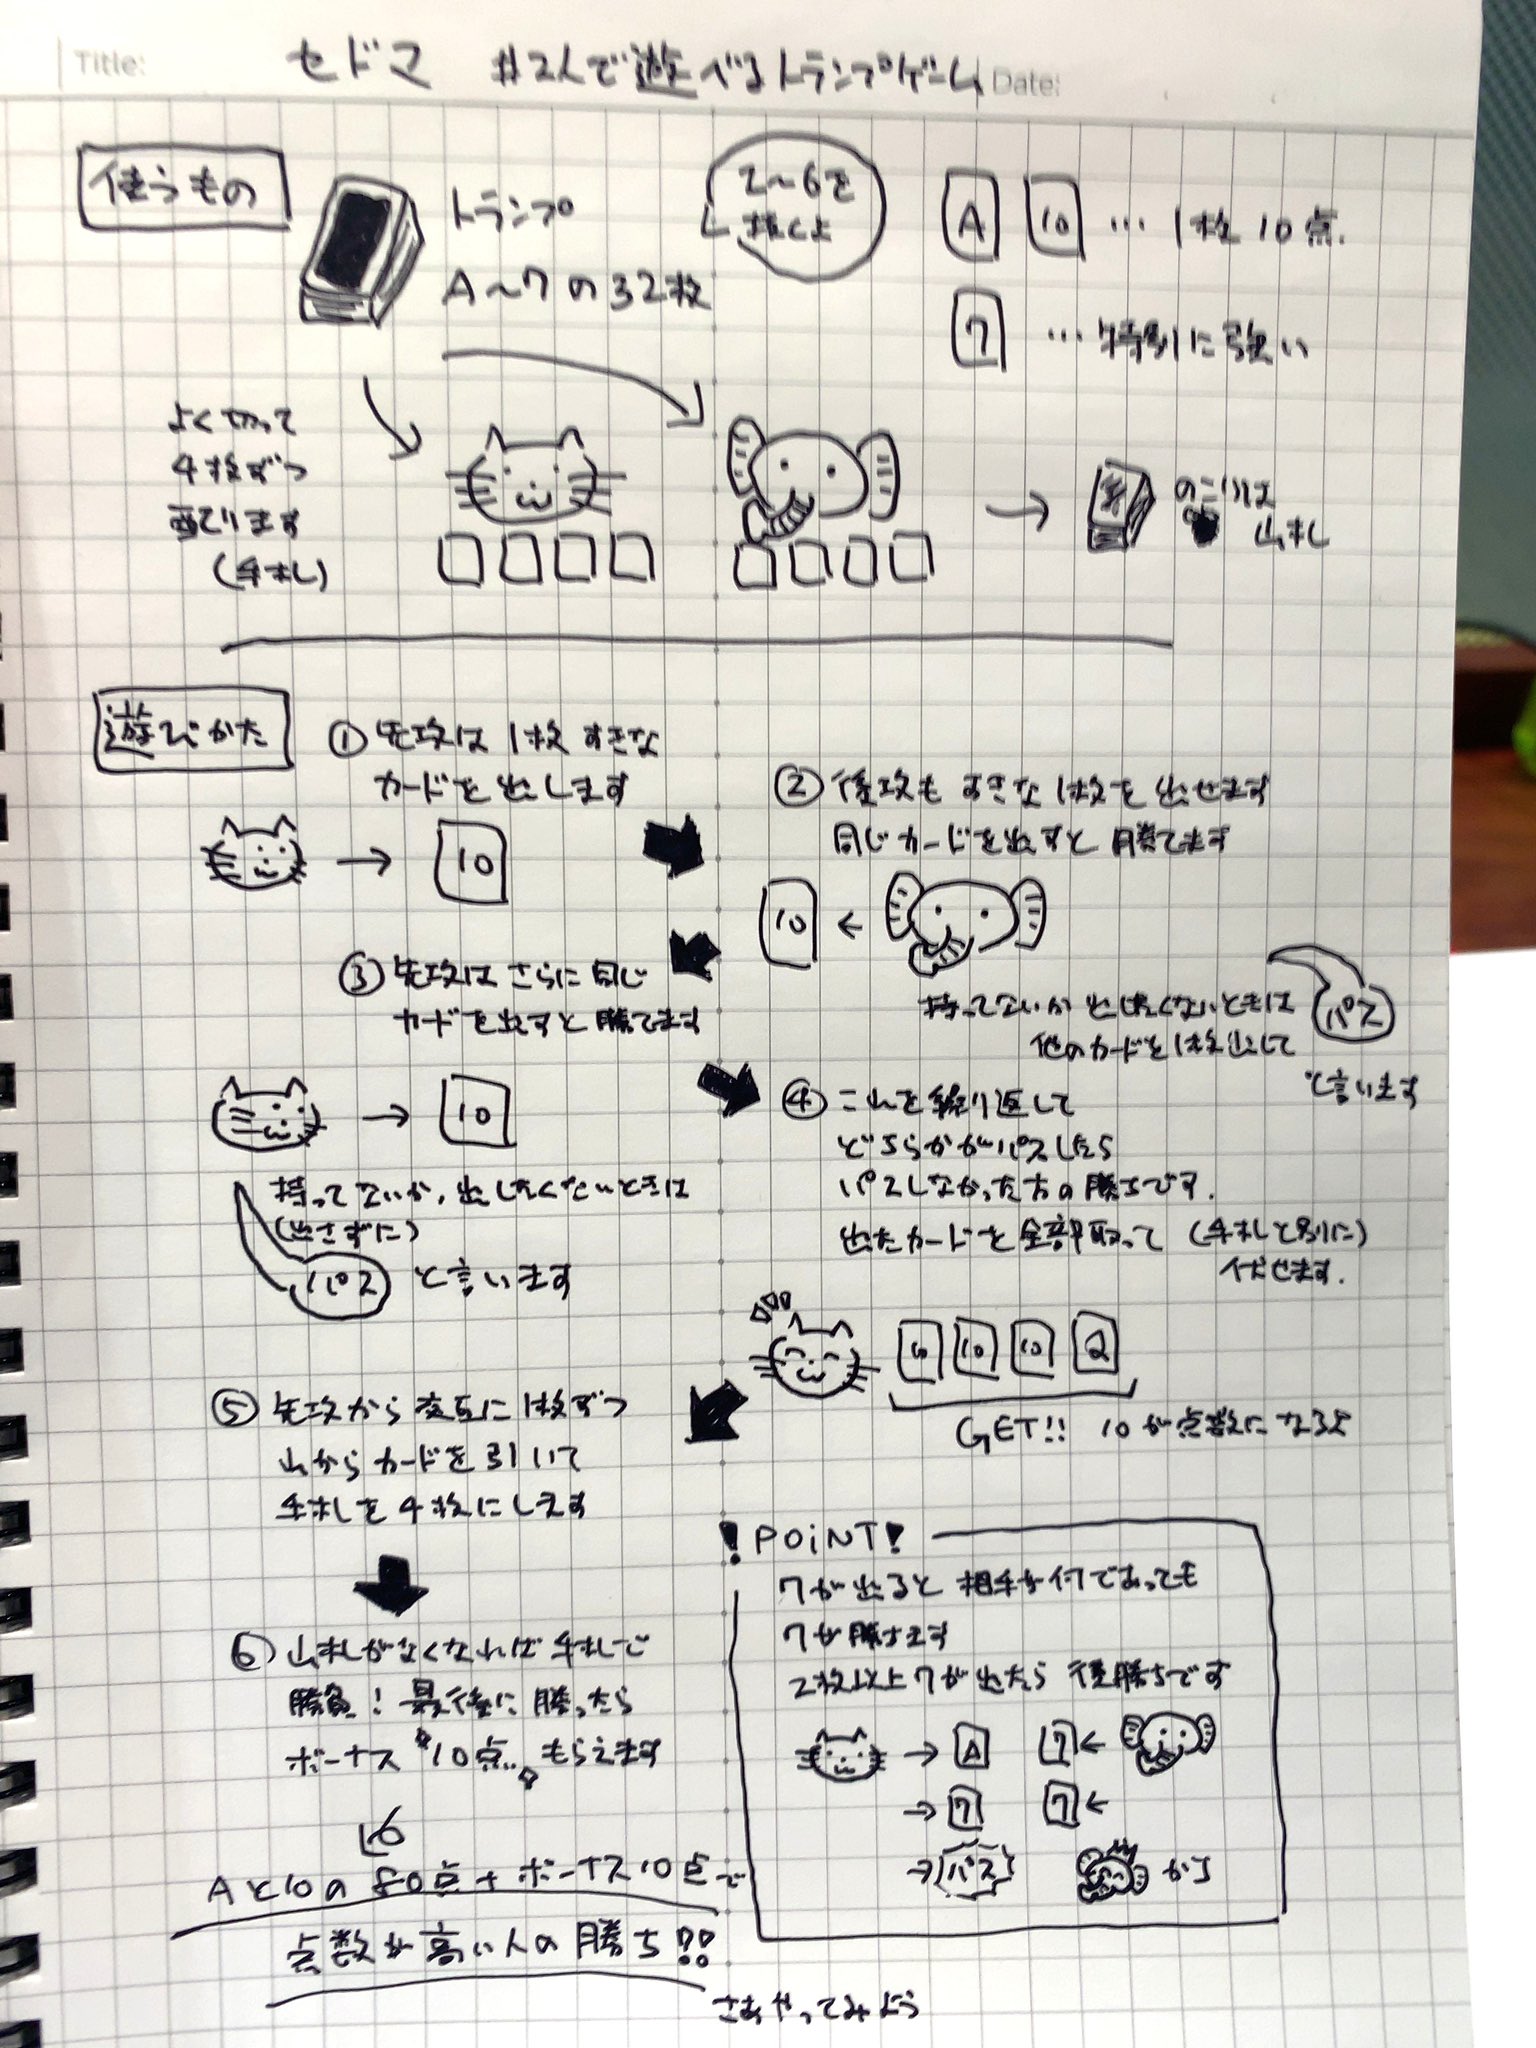 Title: セドマ #2人で遊べるトランプゲーム Date:
使うもの
トランプ
A〜7の32枚
2〜6を
抜くよ
A 10 … 1枚10点.
7 … 特別に強い
よく切って
4枚ずつ
配ります
(手札)
のこりは
山札
遊びかた
① 先攻は1枚すきな
カードを出します
10
② 後攻もすきな1枚を出せます
同じカードを出すと勝てます
10
持ってないか出したくないときは
他のカードを1枚出して
パス
と言います
③ 先攻はさらに同じ
カードを出すと勝てます
10
持ってないか、出したくないときは
(出さずに)
パス と言います
④ これを繰り返して
どちらかがパスしたら
パスしなかった方の勝ちです.
出たカードを全部取って (手札と別に)
伏せます.
10 10 10 Q
GET!! 10が点数になるよ
⑤ 先攻から交互に1枚ずつ
山からカードを引いて
手札を4枚にします
⑥ 山札がなくなれば手札で
勝負! 最後に勝ったら
ボーナス 10点 もらえます
Aと10の80点+ボーナス10点で
点数が高い人の勝ち!!
さあやってみよう
!POiNT!
7が出ると相手が何であっても
7が勝ちます
2枚以上7が出たら後勝ちです
→ A 7 ←
→ 7 7 ←
→ パス かち